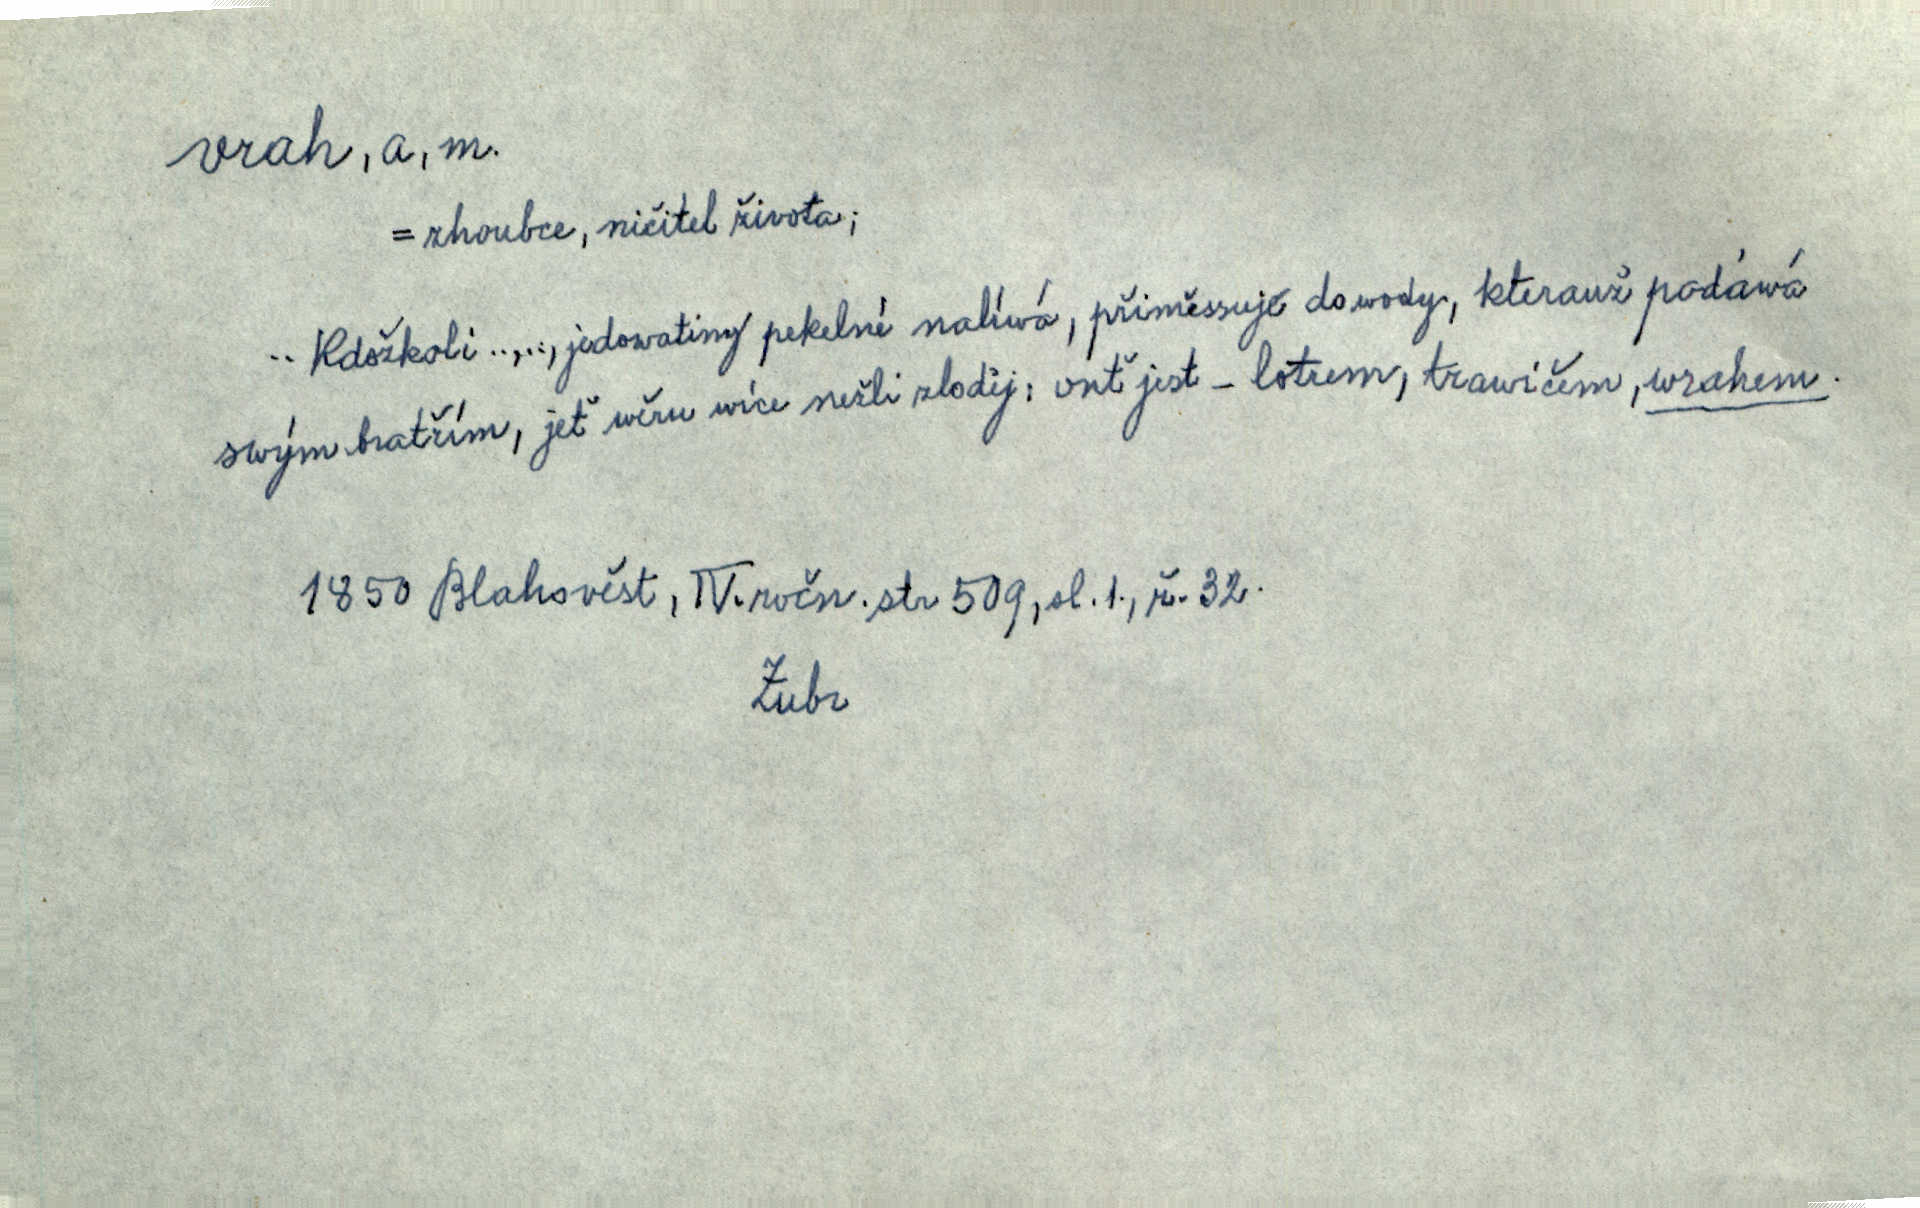 vrah, a, m.
= zhoubce, ničitel života;
.. Kdožkoli ..,.., jedowatiny pekelné naléwá, přiměssuje do wody, kterauž podáwá
swým bratřím, jeť wěru wíce nežli zloděj: onť jest – lotrem, trawičem, wrahem.
1850 Blahověst, IV. ročn. str 509, sl. 1., ř. 32.
Žubr